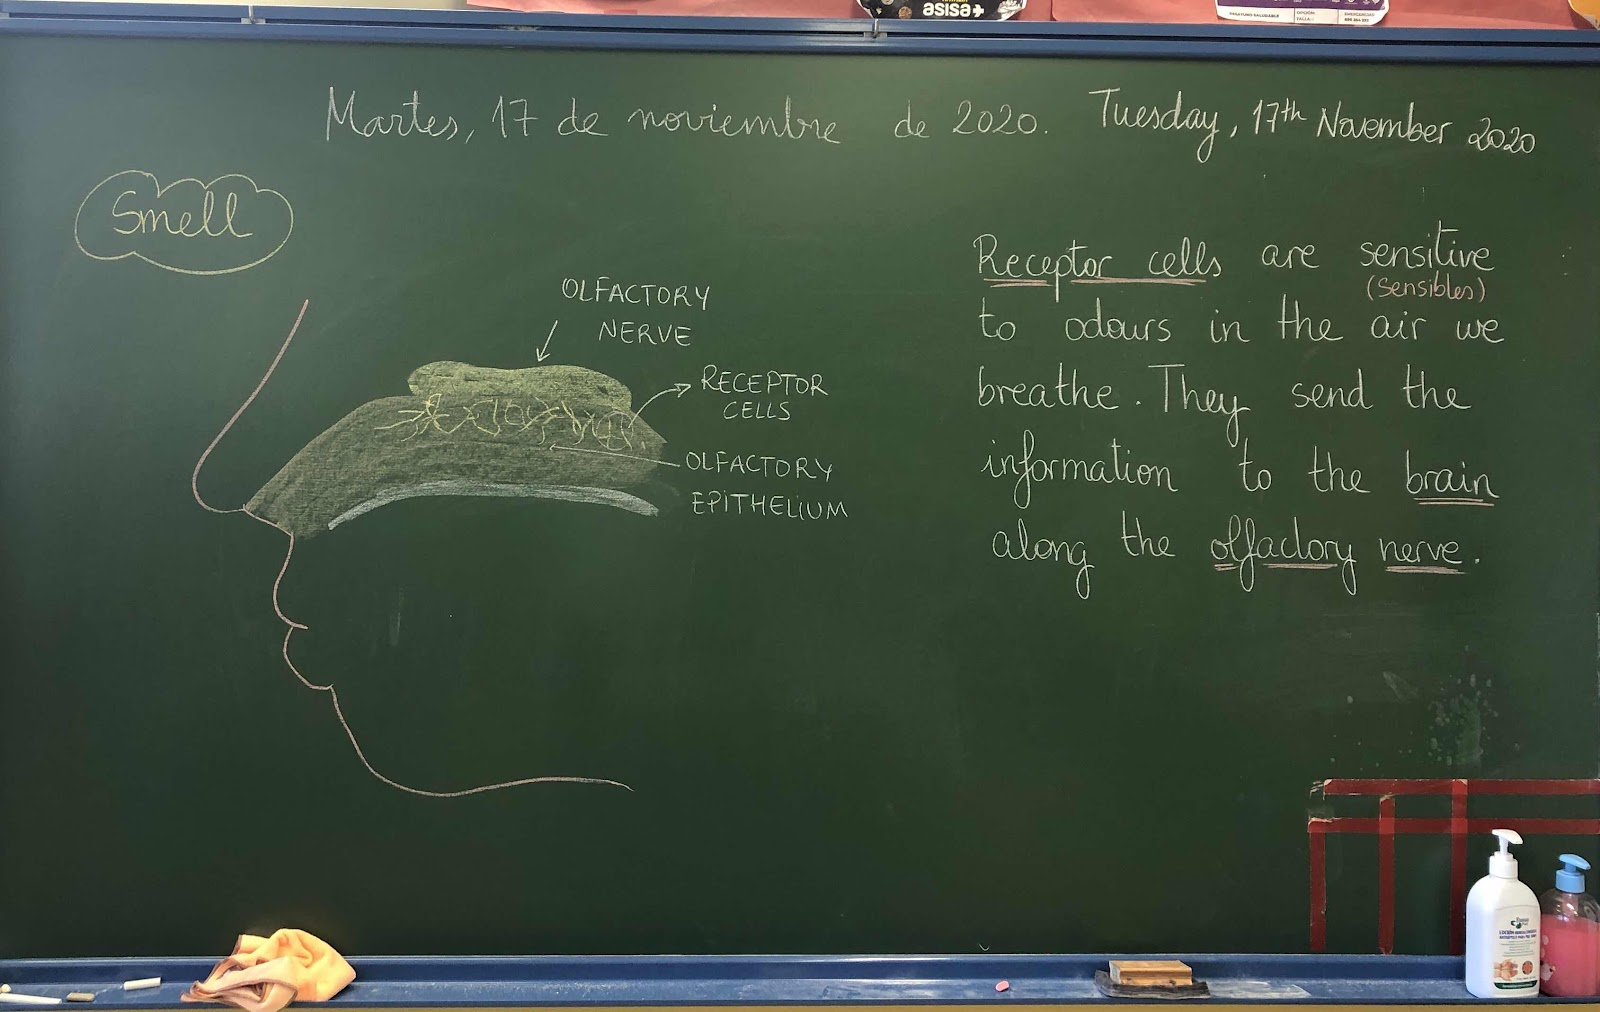 asisa+
DESAYUNO SALUDABLE
OPCIÓN
TALLA
EMERGENCIAS
Martes, 17 de noviembre de 2020. Tuesday, 17th November 2020
Smell
OLFACTORY
NERVE
RECEPTOR
CELLS
OLFACTORY
EPITHELIUM
Receptor cells are sensitive
(sensibles)
to odours in the air we
breathe. They send the
information to the brain
along the olfactory nerve.
LOCIÓN HIDROALCOHÓLICA